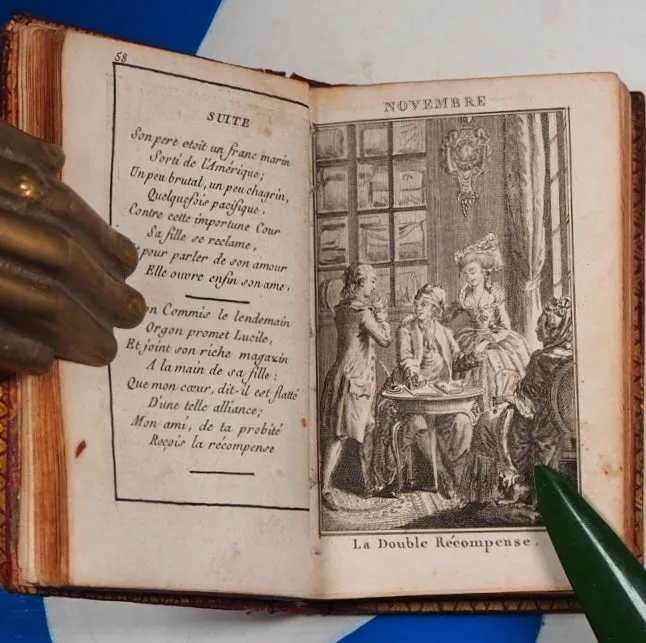 58
SUITE
Son pere etoit un franc marin
Sorti de l'Amérique;
Un peu brutal, un peu chagrin,
Quelquefois pacifique,
Contre cette importune Cour
Sa fille se reclame,
pour parler de son amour
Elle ouvre enfin son ame,
Commis le lendemain
Orgon promet Lucile,
Et joint son riche magaxin
A la main de sa fille:
Que mon cœur, dit-il est flatté
D'une telle alliance;
Mon ami, de ta probité
Reçois la récompense
NOVEMBRE
La Double Récompense.